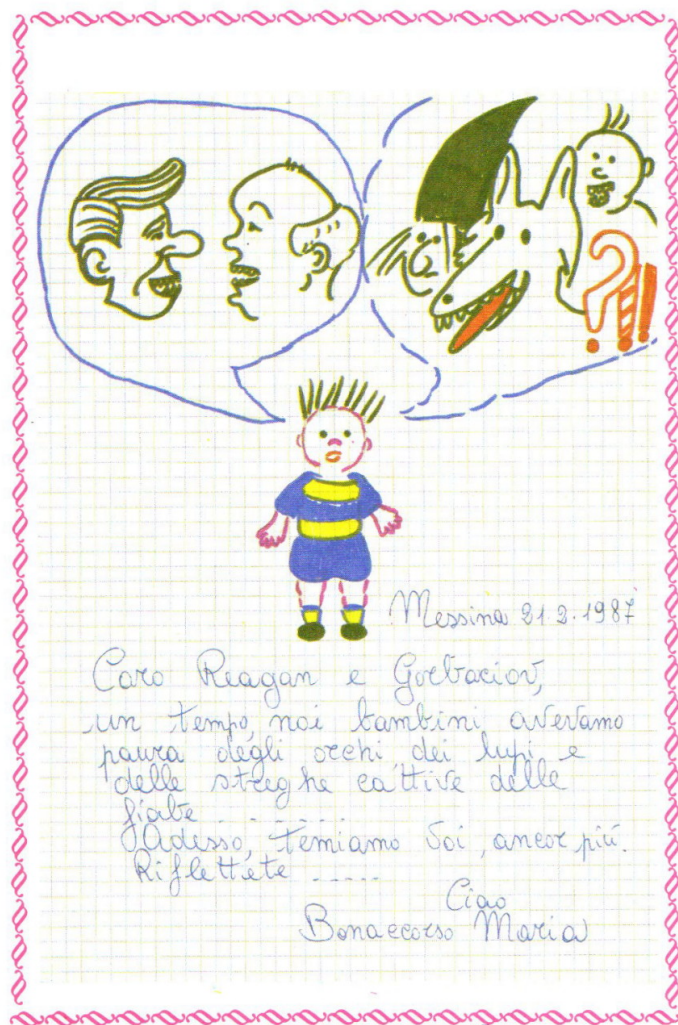 ?!!!
Messina 21.2.1987
Caro Reagan e Gorbaciov,
un tempo, noi bambini avevamo
paura degli orchi dei lupi e
delle streghe cattive delle
fiabe . . . . . .
Adesso, temiamo voi, ancor più.
Riflettete .....
Ciao
Bonaccorso Maria